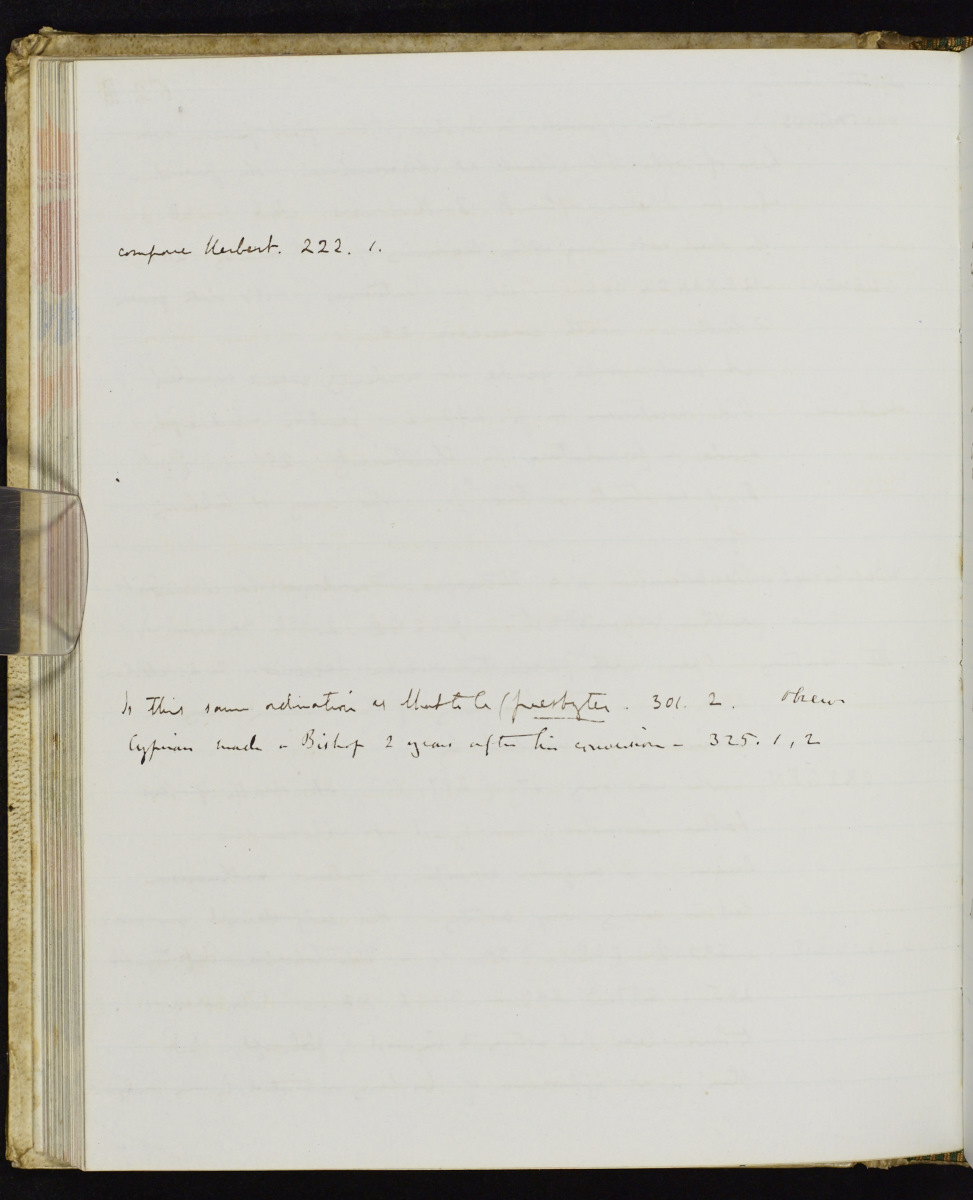 compare Herbert. 222. 1.
Is this same ordination as (presbyter. 301. 2.
Cyprian made a Bishop 2 years after his conversion – 325. 1, 2